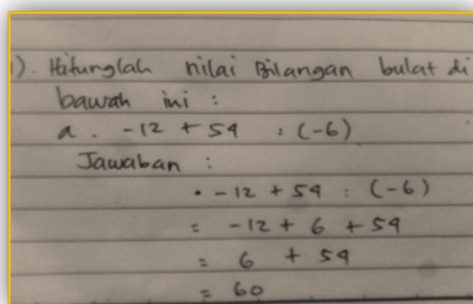 1). Hitunglah nilai Bilangan bulat di
bawah ini :
a . -12 + 54 : (-6)
Jawaban :
• -12 + 54 : (-6)
= -12 + 6 + 54
= 6 + 54
= 60